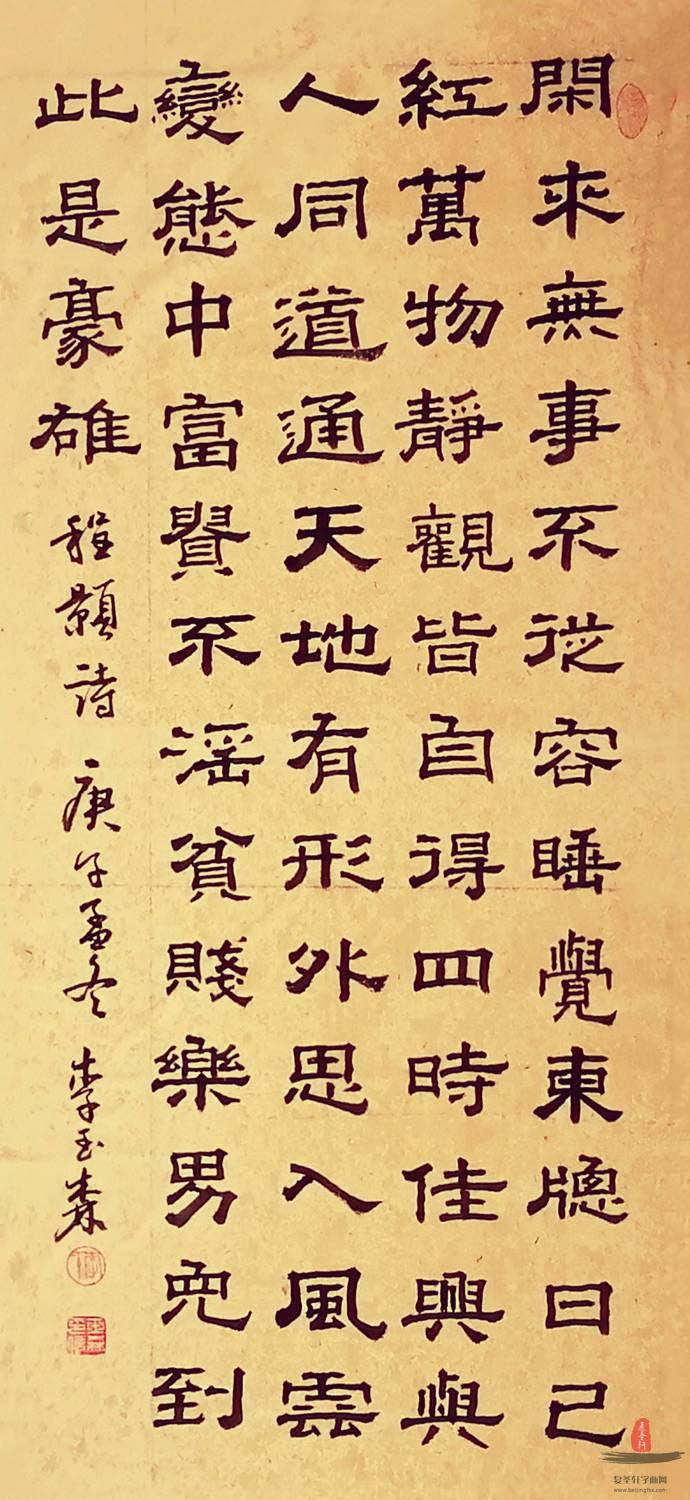 閑來無事不從容睡覺東牕日已
紅萬物靜觀皆自得四時佳興與
人同道通天地有形外思入風雲
變態中富貴不淫貧賤樂男兒到
此是豪雄 程顥詩 庚午孟冬 李玉森
复圣轩字画网